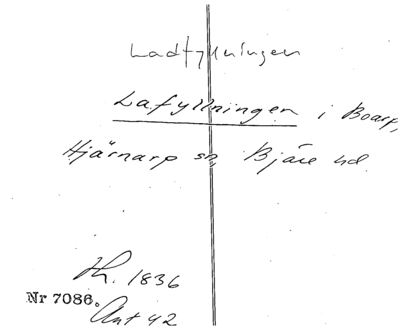 Ladfyllningen
Lafyllningen i Boarp,
Hjärnarp sn, Bjäre hd.
Th. 1836
Nr 7086.
Ant 42